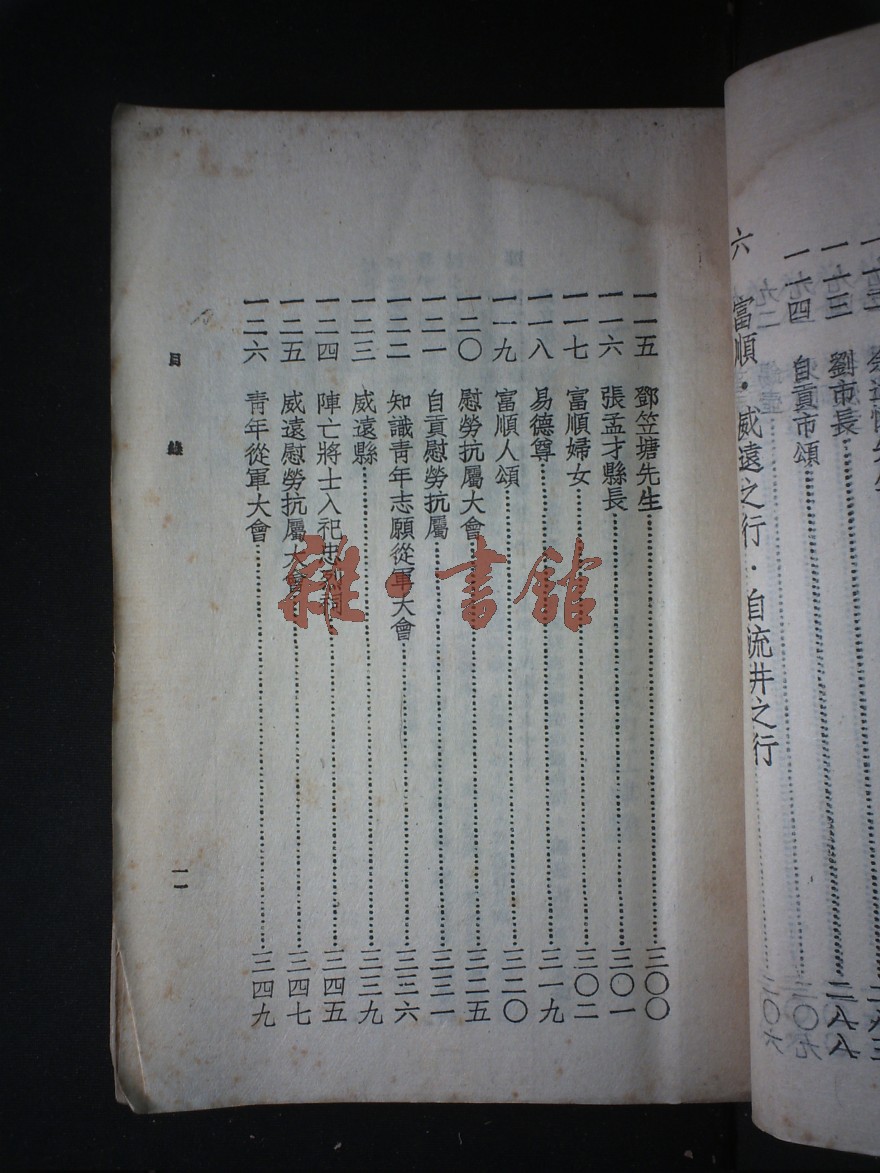 一一三 劉市長……二八八
一一四 自貢市頌
六 富順·威遠之行·自流井之行
一一五 鄧笠塘先生……三〇〇
一一六 張孟才縣長……三〇一
一一七 富順婦女……三〇二
一一八 易德尊……三一九
一一九 富順人頌……三二〇
一二〇 慰勞抗屬大會……三二五
一二一 自貢慰勞抗屬……三三一
一二二 知識青年志願從軍大會……三三六
一二三 威遠縣……三三九
一二四 陣亡將士入祀忠烈祠……三四五
一二五 威遠慰勞抗屬大會……三四七
一二六 青年從軍大會……三四九
目錄
一一
雜·書館